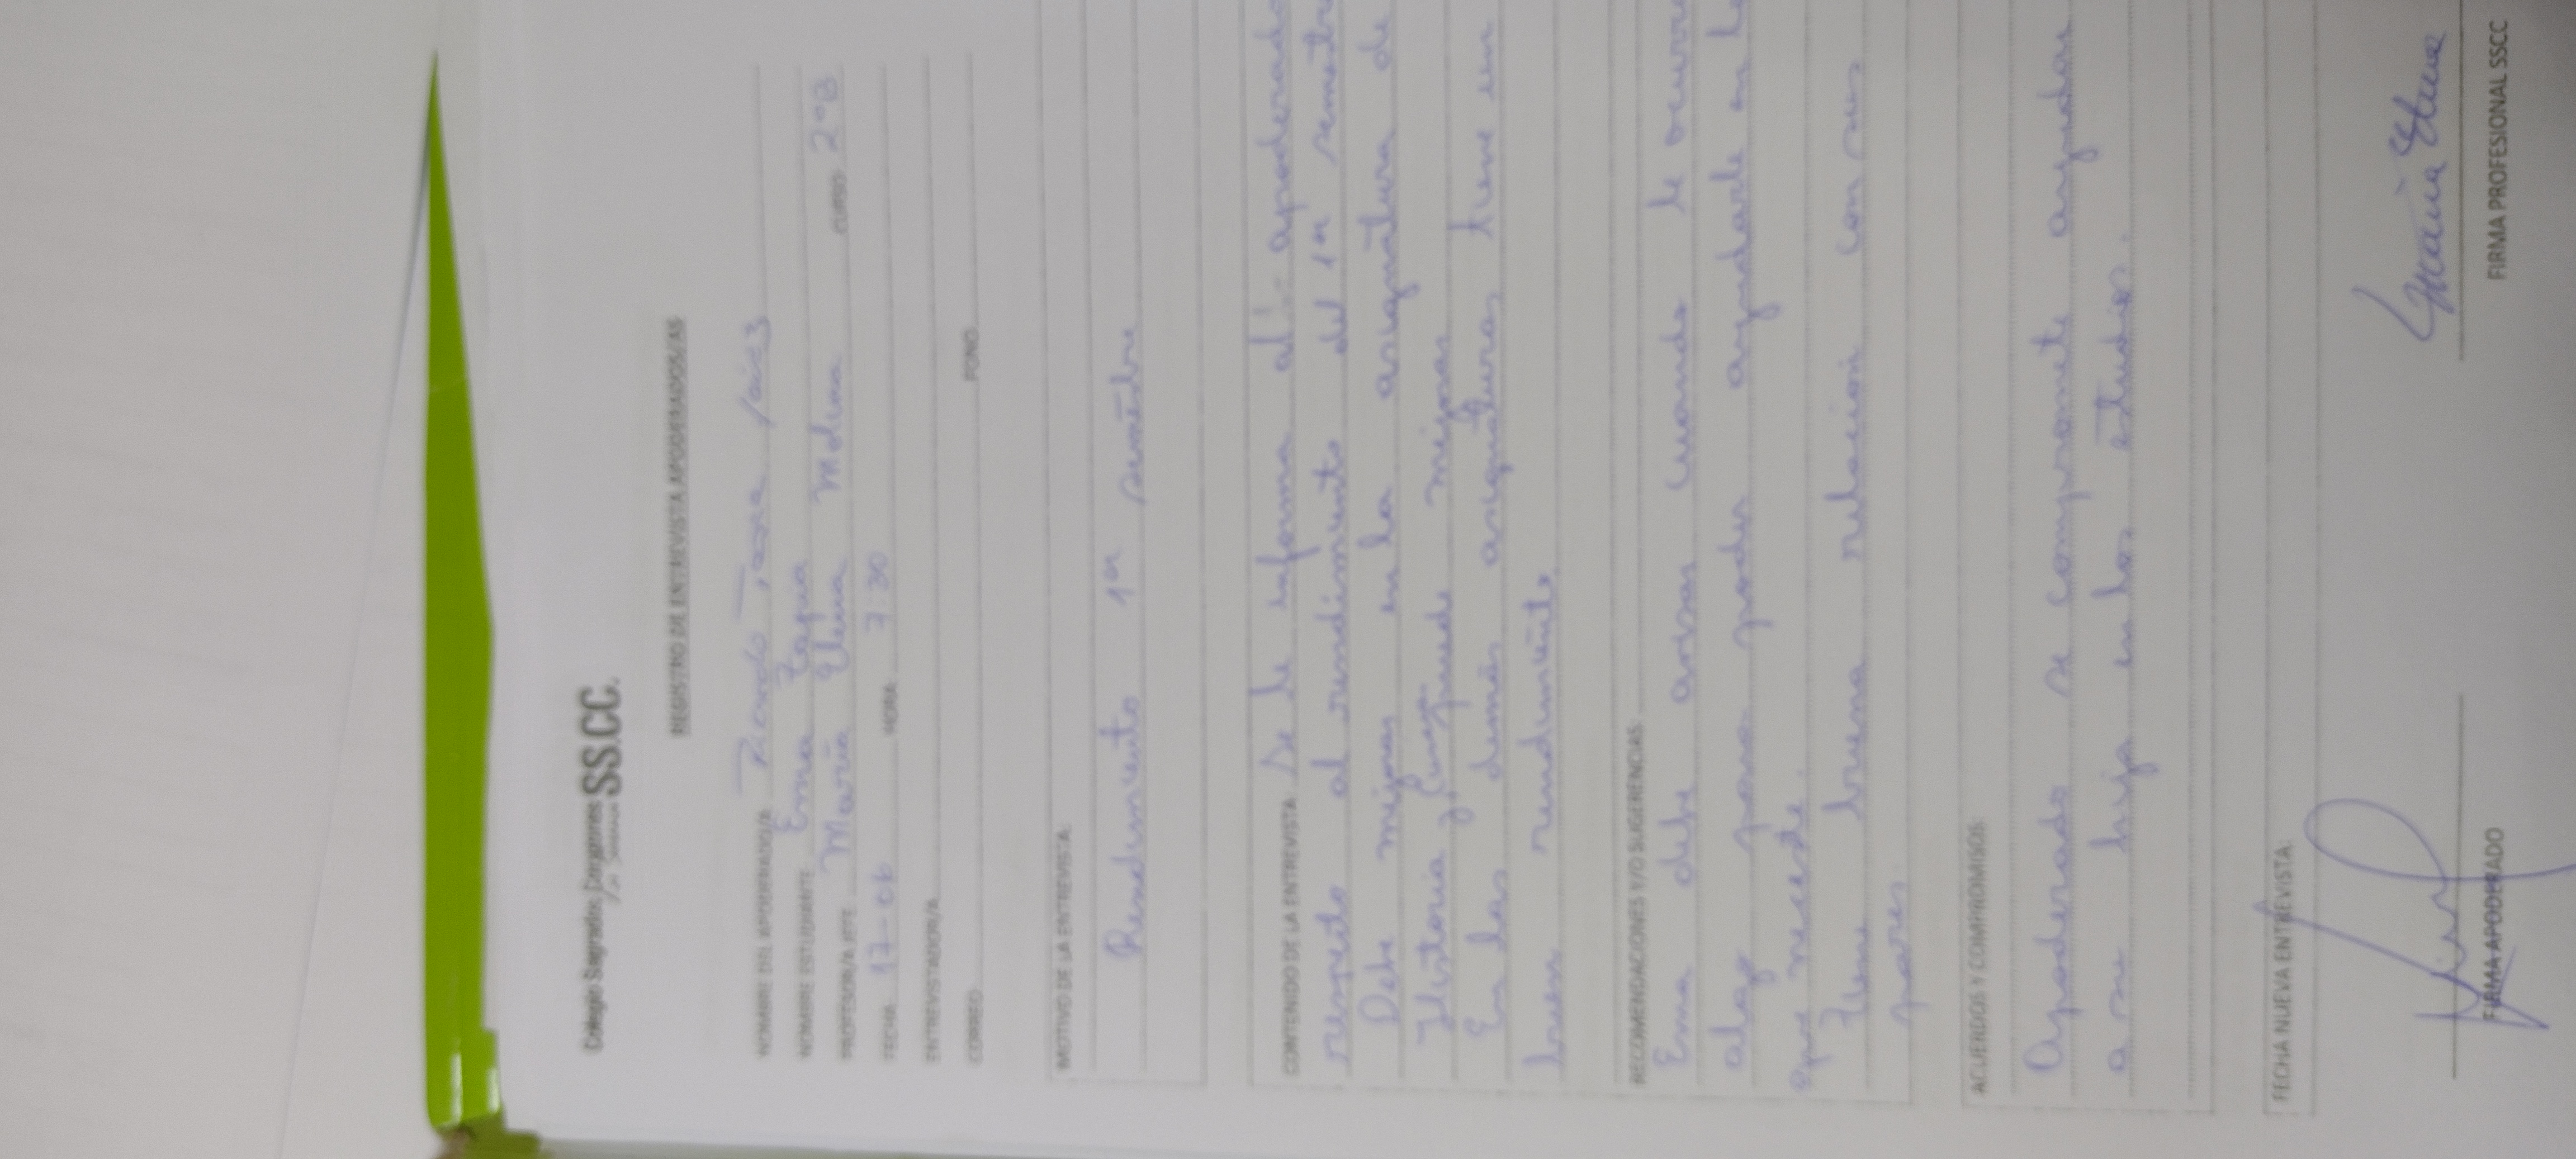 Colegio Sagrados Corazones
SS.CC.
REGISTRO DE ENTREVISTA APODERADOS/AS
NOMBRE DEL APODERADO/A Ricardo
NOMBRE ESTUDIANTE Ema Tapia
PROFESOR/A JEFE María Elena Molina CURSO 2ºB
FECHA 17-06 HORA 7:30
ENTREVISTADOR/A
CORREO FONO
MOTIVO DE LA ENTREVISTA
Rendimiento 1er semestre
CONTENIDO DE LA ENTREVISTA Se le informa al apoderado
respecto al rendimiento del 1er semestre
Debe mejorar en la asignatura de
Historia y Lenguaje puede mejorar
En las demás asignaturas tiene un
buen rendimiento.
RECOMENDACIONES Y/O SUGERENCIAS
Ema debe avisar cuando le ocurre
algo para poder ayudarle en lo
que necesite.
Tiene buena relación con sus
pares
ACUERDOS Y COMPROMISOS
Apoderado se compromete ayudar
a su hija en los estudios.
FECHA NUEVA ENTREVISTA
FIRMA APODERADO
FIRMA PROFESIONAL SSCC